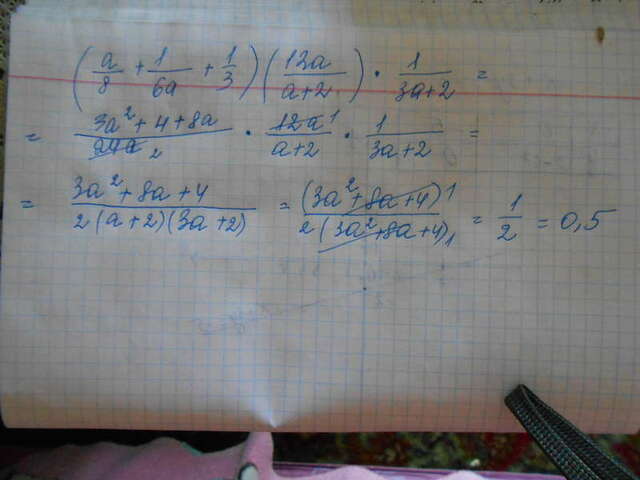 (a/8 + 1/6a + 1/3) (12a/a+2) · 1/3a+2 =
= 3a²+4+8a/24a 2 · 12a 1/a+2 · 1/3a+2 =
= 3a²+8a+4/2(a+2)(3a+2) = (3a²+8a+4) 1/2(3a²+8a+4) 1 = 1/2 = 0,5